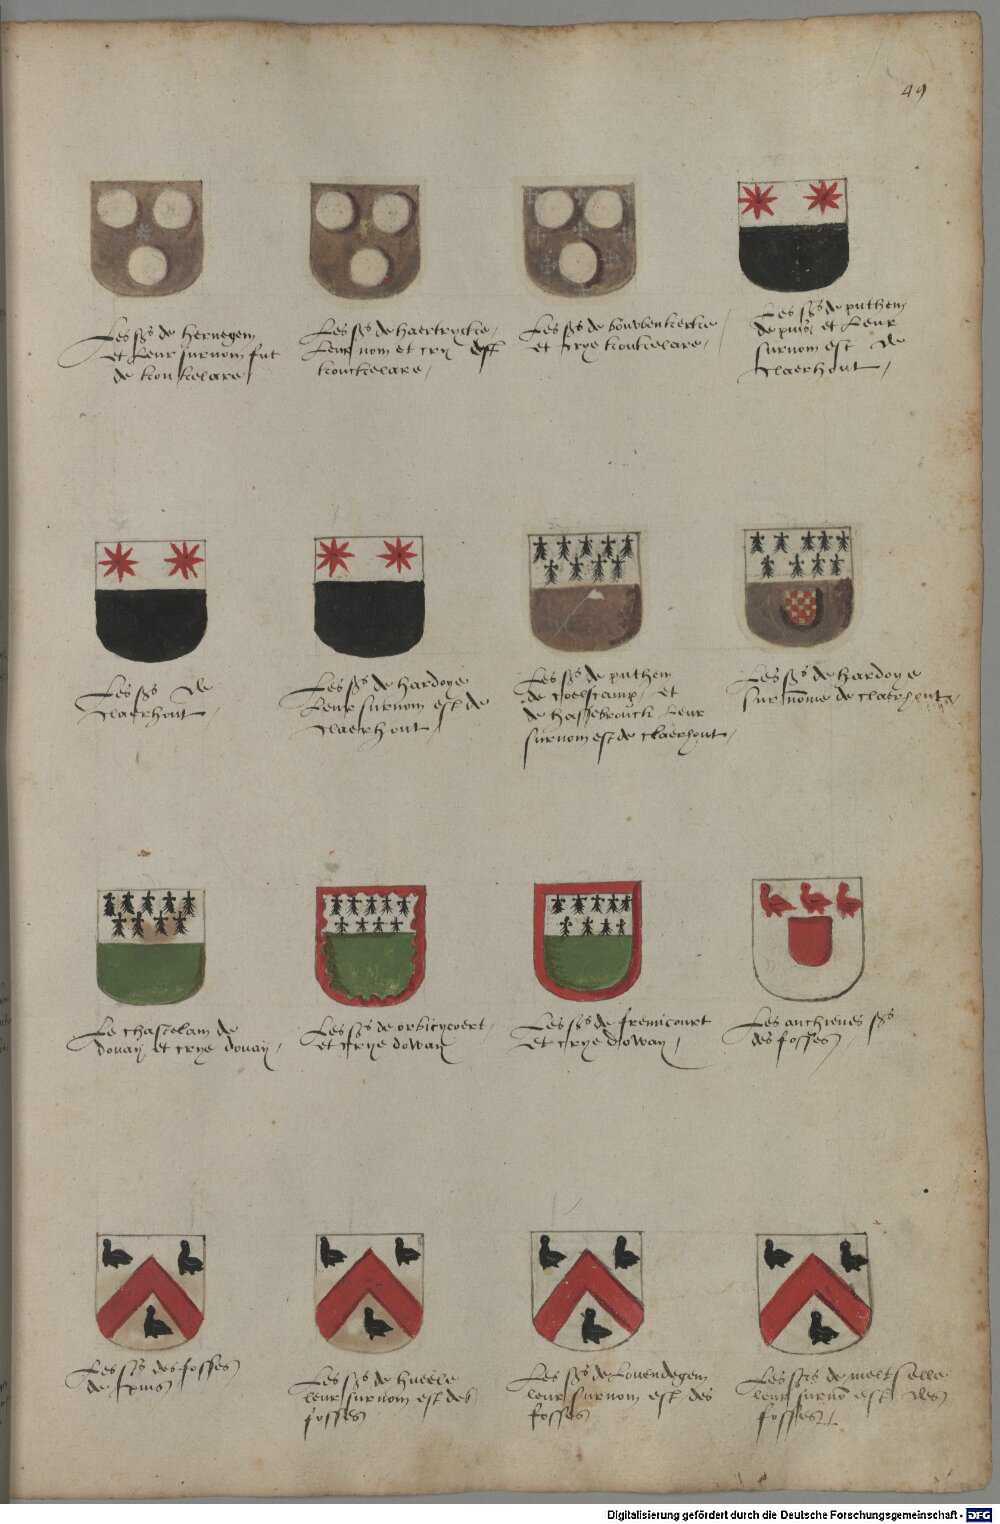 49
Les sgrs de hernegem
et Leur surnom fut
de
Les sgrs de haertrycke,
Leur nom et cry est

Les sgrs de
et crye
Les sgrs de puthem
de puis et Leur
surnom est de
Claerhout,
Les sgrs de
Claerhout,
Les sgrs de hardoye
Leur surnom est de
Claerhout,
Les sgrs de puthem
de coelscamp, et
de hassebrouck Leur
surnom est de claerhout,
Les sgrs de hardoye
surnõme de claerhout,
Le chastelain de
douay et crye douay,
Les sgrs de
et crye dowan
Les sgrs de fremicourt
et crye dowan,
Les anchienes sgrs
des fosses
Les sgrs des fosses
de puis
Les sgrs de huerle
leur surnom est des
fosses
Les sgrs de Lovendegem
leur surnom est des
fosses
Les sgrs de meltselle
leur surnõ est des
fosses
Digitalisierung gefördert durch die Deutsche Forschungsgemeinschaft - DFG